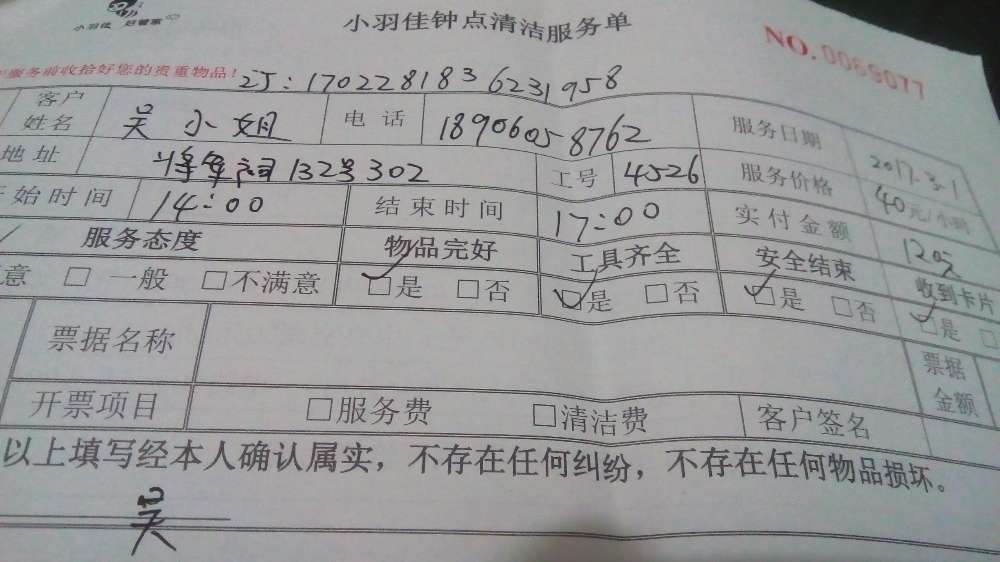 小羽佳 好管家
小羽佳钟点清洁服务单
NO.0069077
服务前收拾好您的贵重物品！
25:1702281836231958
客户姓名 吴小姐 电话 18906058762 服务日期 2017.3.1
地址 将军祠132号302 工号 4526 服务价格 40元/小时
开始时间 14:00 结束时间 17:00 实付金额 120元
服务态度 物品完好 工具齐全 安全结束 收到卡片
意 □ 一般 □不满意 ☑是 □否 ☑是 □否 ☑是 □否 ☑是 □
票据名称 票据金额
开票项目 □服务费 □清洁费 客户签名
以上填写经本人确认属实，不存在任何纠纷，不存在任何物品损坏。
吴